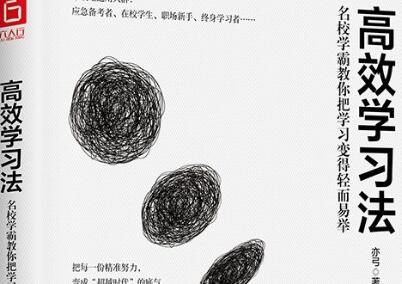 应急备考者、在校学生、职场新手、终身学习者……
高效学习法
名校学霸教你把学习变得轻而易举
亦弓 著
把每一份精准努力,
变成“超越时代”的底气
高效学习法
名校学霸教你把学